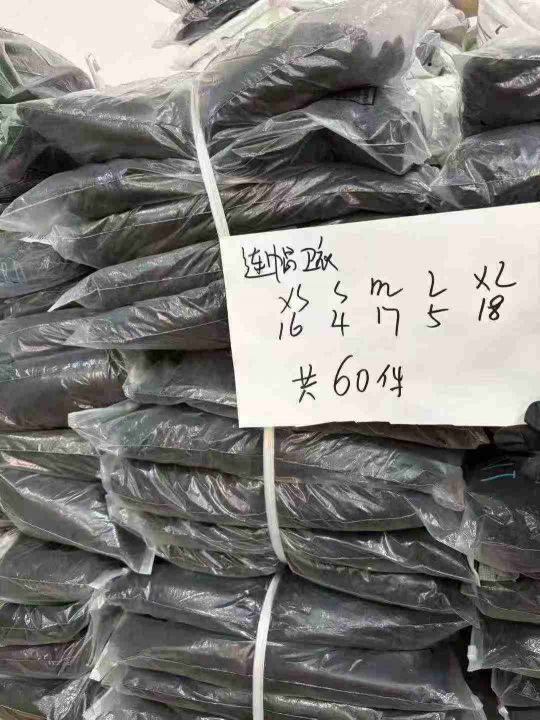 连帽卫衣
XS S m L XL
16 4 17 5 18
共60件